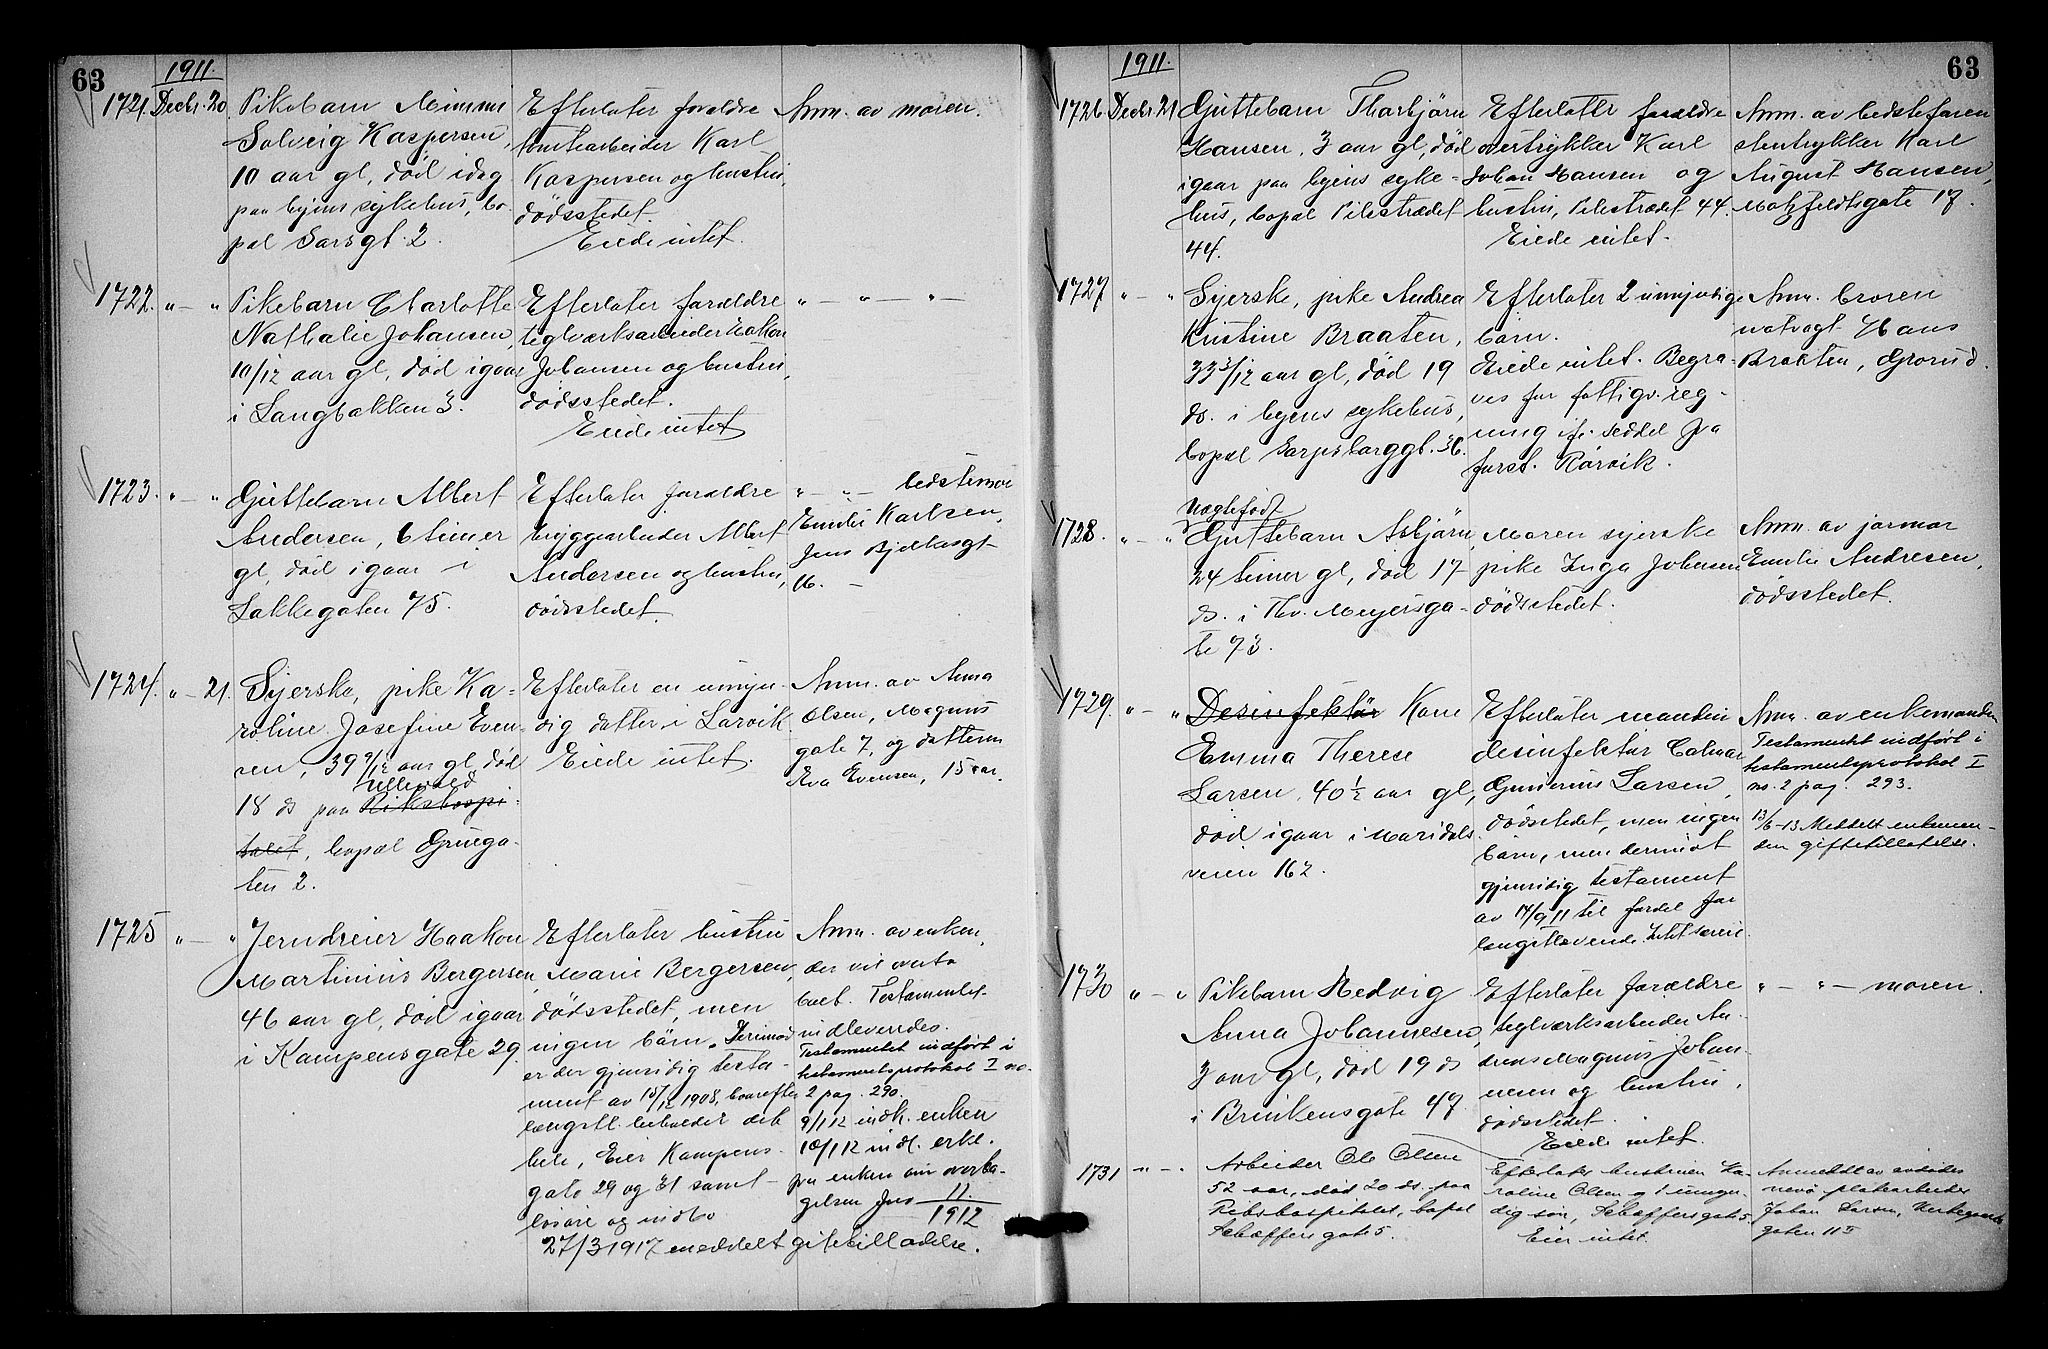 63
1911.
1721. Decbr. 20. Pikebarn Mimmi
Solveig Kaspersen,
10 aar gl, död idag
paa byens sykehus, bo-
pæl Sarsgt. 2.
Efterlater forældre
Karl
Kaspersen og hustru,
dödsstedet.
Eiede intet.
Anm. av moren.
1722. " — " Pikebarn Charlotte
Nathalie Johansen,
10/12 aar gl, död igaar
i Langbakken 3.
Efterlater forældre
teglverksarbeider Håkon
Johansen og hustru,
dödsstedet.
Eiede intet
" — " — " —
1723. " — " Guttebarn Albert
Andersen, 6 timer
gl, död igaar i
Lakkegaten 75.
Efterlater forældre
bryggearbeider Albert
Andersen og hustru,
dödsstedet.
" — " — bedstemor
Emilie Karlsen,
Jens Bjelkesgt
16. —
1724. " — 21. Syerske, pike Ka-
roline Josefine Even-
sen, 39 9/12 aar gl, död
Ullevaal
18 ds paa Rikshospi-
talet, bopæl Gruega-
ten 2.
Efterlater en umyn-
dig datter i Larvik.
Eiede intet.
Anm. av Anna
Olsen, Magnus
gate 7, og datteren
Eva Evensen, 15 aar.
1725 " — " Jerndreier Haakon
Martinius Bergersen,
46 aar gl, död igaar
i Kampensgate 29.
Efterlater hustru
Marie Bergersen,
dödsstedet, men
ingen börn. Derimod
er der gjensidig testa-
ment av 15/12 1908, hvorefter
længstl. beholder det
hele, Eier Kampens-
gate 29 og 31 samt
lösöre og indbo
27/3 1917 meddelt giftetilladelse.
Anm. av enken,
der vil overta
boet. Testamentet
indleveredes.
Testamentet indfört i
testamentsprotokol I no.
2 pag. 290.
9/1 12 indk. enken
10/1 12 indl. erkl.
fra enken om overta-
gelsen Jno 11/1912
63
1911.
1726. Decbr. 21 Guttebarn Thorbjörn
Hansen, 3 aar gl, död
igaar paa byens syke-
hus, bopæl Pilestrædet
44.
Efterlater forældre
overtrykker Karl
Johan Hansen og
hustru, Pilestrædet 44.
Eiede intet.
Anm. av bedstefaren
stentrykker Karl
August Hansen,
Motzfeldtsgate 17.
1727 " — " Syerske, pike Andrea
Kristine Braaten,
33 3/12 aar gl, död 19
ds. i byens sykehus,
bopæl Sarpsborggt. 36.
Efterlater 2 umyndige
börn.
Eiede intet. Begra-
ves for fattigv. reg-
ning if. seddel fra
forst. Rörvik.
Anm. broren
natvagt Hans
Braaten, Grorud.
Uegtefödt
1728. " — " Guttebarn Asbjörn,
24 timer gl, död 17
ds. i Thv. Meyersga-
te 73.
Moren syerske
pike Inga Johansen
dödsstedet.
Anm. av jormor
Emilie Andresen,
dödsstedet.
1729. " — " Desinfektör Kone
Emma Therese
Larsen, 40 1/2 aar gl,
död igaar i Maridals-
veien 162.
Efterlater manden
desinfektör Colmar
Gunerius Larsen,
dödsstedet, men ingen
börn, men derimot
gjensidig testament
av 14/9 11 til fordel for
længstlevende. Intet særeie.
Anm. av enkemanden
Testamentet indfört i
testamentsprotokol I
no. 2 pag. 293.
13/6-13 Meddelt enkeman-
den giftetilladelse.
1730 " — " Pikebarn Hedvig
Anna Johannesen,
3 aar gl, död 19 ds
i Brinkensgate 47.
Efterlater forældre
teglverksarbeider An-
dreas Magnus Johan-
nesen og hustru,
dödsstedet.
Eiede intet.
" — " — moren.
1731 " — " Arbeider Ole Olsen
52 aar, död 20 ds. paa
Rikshospitalet, bopæl
Schæffersgate 5.
Efterlater hustruen Ka-
roline Olsen og 1 umyn-
dig sön, Schæffersgate 5.
Eier intet.
Anmeldt av avdödes
nevö platearbeider
Johan Larsen,
gaten 11 II